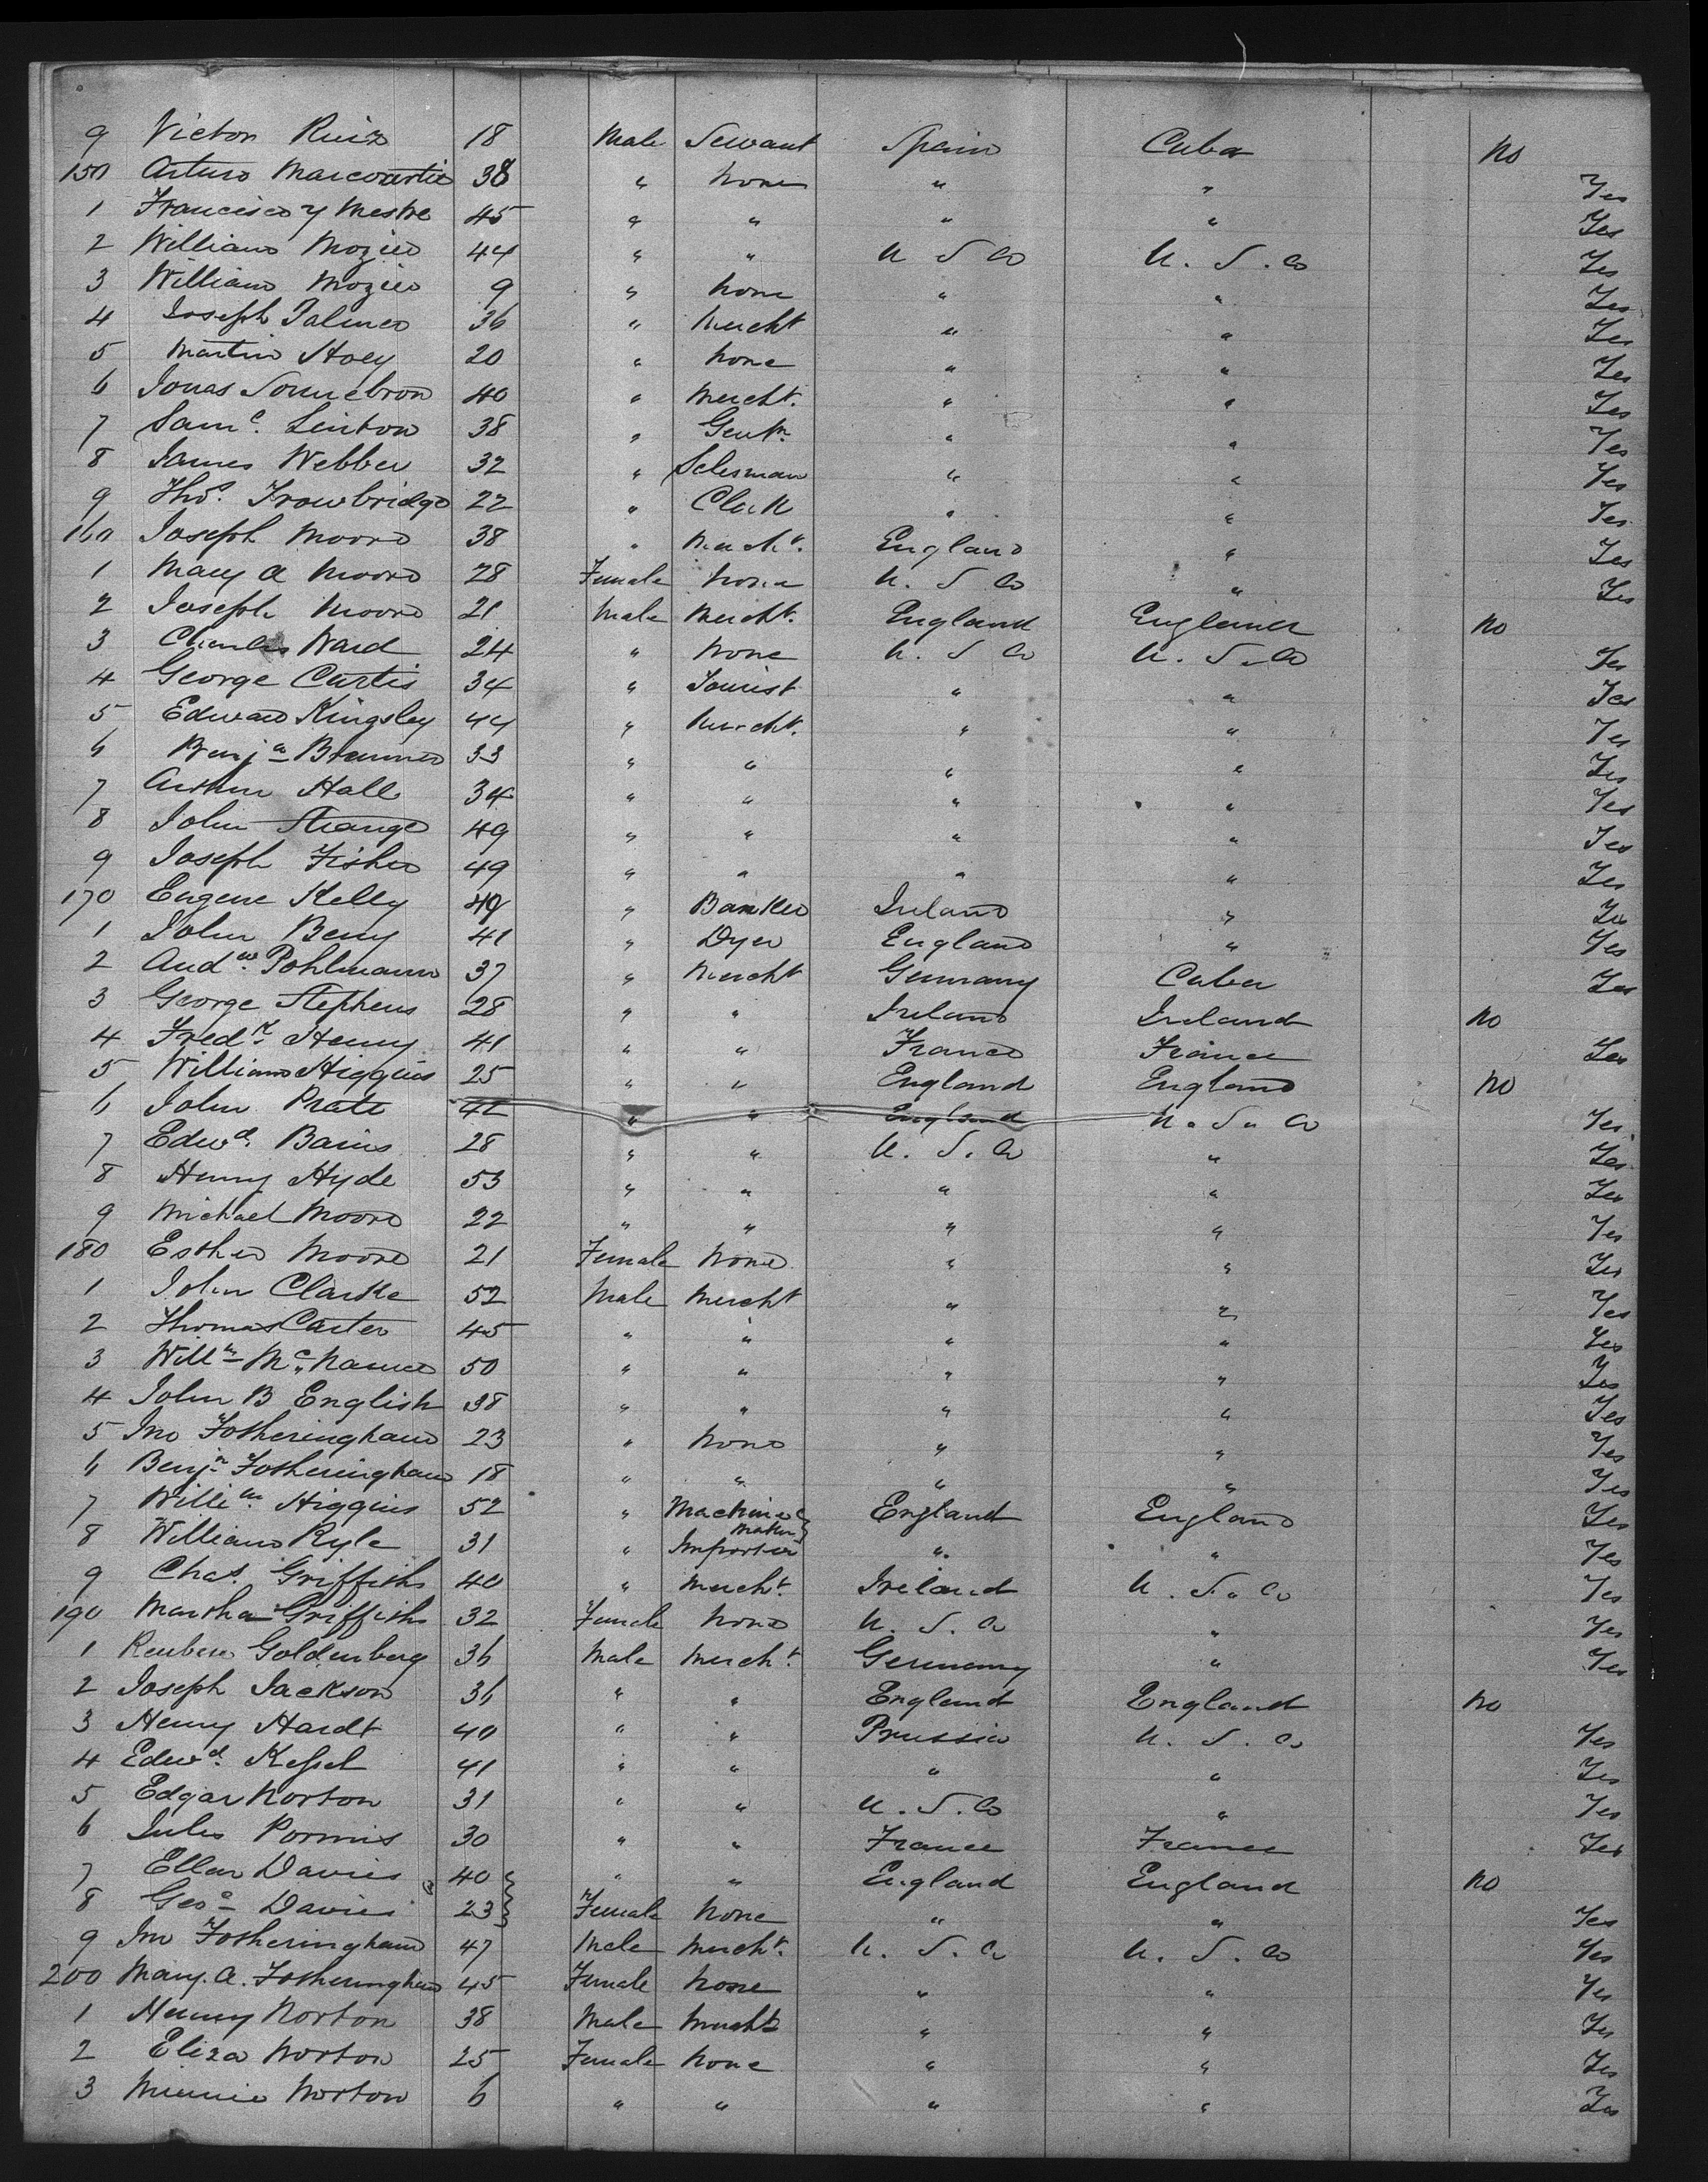 9 Victor Ruiz 18 Male Servant Spain Cuba no
150 Arturo Marcoartie 38 " none " " Yes
1 Francisco y Mestre 45 " " " " Yes
2 William Mozier 44 " " U S Co U. S. Co Yes
3 William Mozier 9 " none " " Yes
4 Joseph Palmer 36 " Mercht " " Yes
5 Martin Hoey 20 " none " " Yes
6 Jonas Sonnebron 40 " Mercht. " " Yes
7 Saml. Linton 38 " Gentn. " " Yes
8 James Webber 32 " Selesman " " Yes
9 Thos. Trowbridge 22 " Clerk " " Yes
160 Joseph Moore 38 " Mercht. England " Yes
1 Mary A Moore 28 Female none U. S Co " Yes
2 Joseph Moore 21 Male Mercht. England England no
3 Charles Ward 24 " none U. S Co U. S. Co Yes
4 George Curtis 34 " Tourist " " Yes
5 Edward Kingsley 44 " Mercht. " " Yes
6 Benjn Brenner 33 " " " " Yes
7 Arthur Hall 34 " " " " Yes
8 John Strange 49 " " " " Yes
9 Joseph Fisher 49 " " " " Yes
170 Eugene Kelly 49 " Banker Ireland " Yes
1 John Berry 41 " Dyer England " Yes
2 Andw. Pohlmann 37 " Mercht Germany Cuba Yes
3 George Stephens 28 " " Ireland Ireland no
4 Fredk. Henry 41 " " France France Yes
5 William Higgins 25 " " England England no
6 John Pratt 42 " " England U. S. Co Yes
7 Edwd. Bains 28 " " U. S. Co " Yes
8 Henry Hyde 53 " " " " Yes
9 Michael Moore 22 " " " " Yes
180 Esther Moore 21 Female None " " Yes
1 John Clarke 52 Male Mercht " " Yes
2 Thomas Carter 45 " " " " Yes
3 Willm Mc.Namee 50 " " " " Yes
4 John B English 38 " " " " Yes
5 Jno Fotheringham 23 " None " " Yes
6 Benjn Fotheringham 18 " " " " Yes
7 Willim. Higgins 52 " Machine Maker England England Yes
8 William Ryle 31 " Importer " " Yes
9 Chas. Griffiths 40 " Mercht. Ireland U. S. Co Yes
190 Martha Griffiths 32 Female None U. S. Co " Yes
1 Reuben Goldenberg 36 Male Mercht. Germany " Yes
2 Joseph Jackson 36 " " England England no
3 Henry Hardt 40 " " Prussia U. S. Co Yes
4 Edwd. Kessel 41 " " " " Yes
5 Edgar Norton 31 " " U. S. Co " Yes
6 Jules Pormis 30 " " France France Yes
7 Ellen Davies 40 " " England England no
8 Geo. Davies 23 Female None " " Yes
9 Jno Fotheringham 47 Male Mercht. U. S. Co U. S. Co Yes
200 Mary. A. Fotheringham 45 Female None " " Yes
1 Henry Norton 38 Male Mercht " " Yes
2 Eliza Norton 25 Female None " " Yes
3 Minnie Norton 6 " " " " Yes